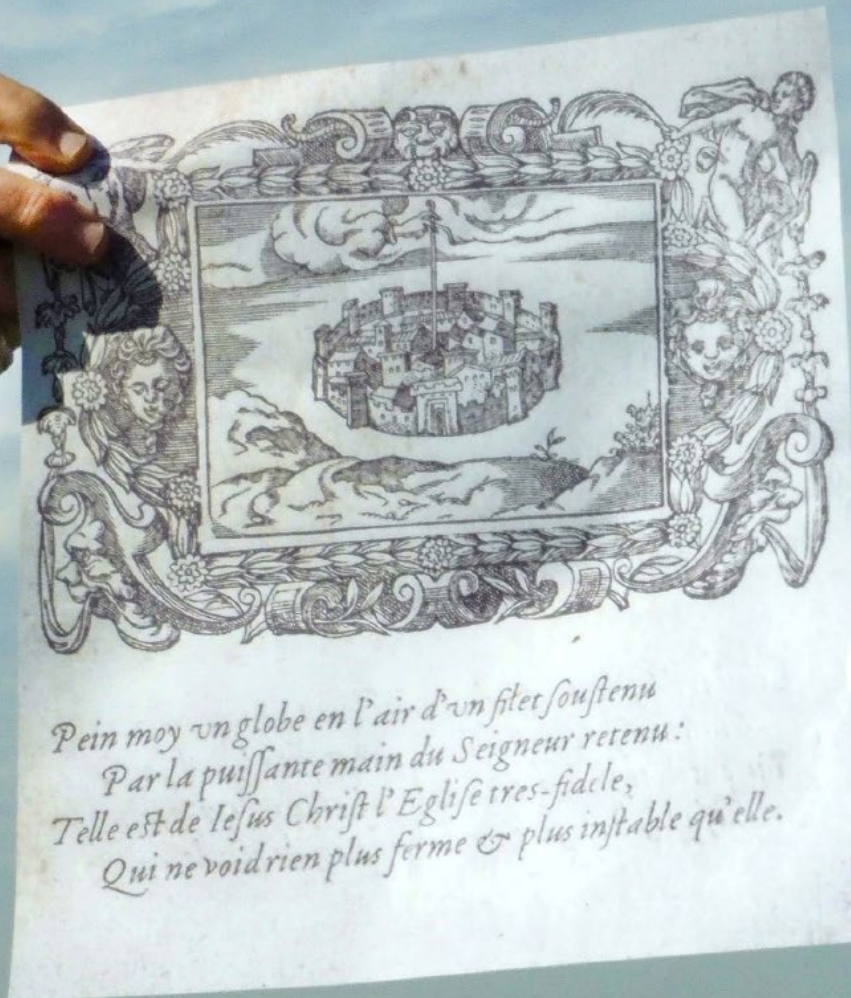 Pein moy vn globe en l'air d'vn filet ſouſtenu
Par la puiſſante main du Seigneur retenu:
Telle eſt de Ieſus Chriſt l'Egliſe tres-fidele,
Qui ne void rien plus ferme & plus inſtable qu'elle.